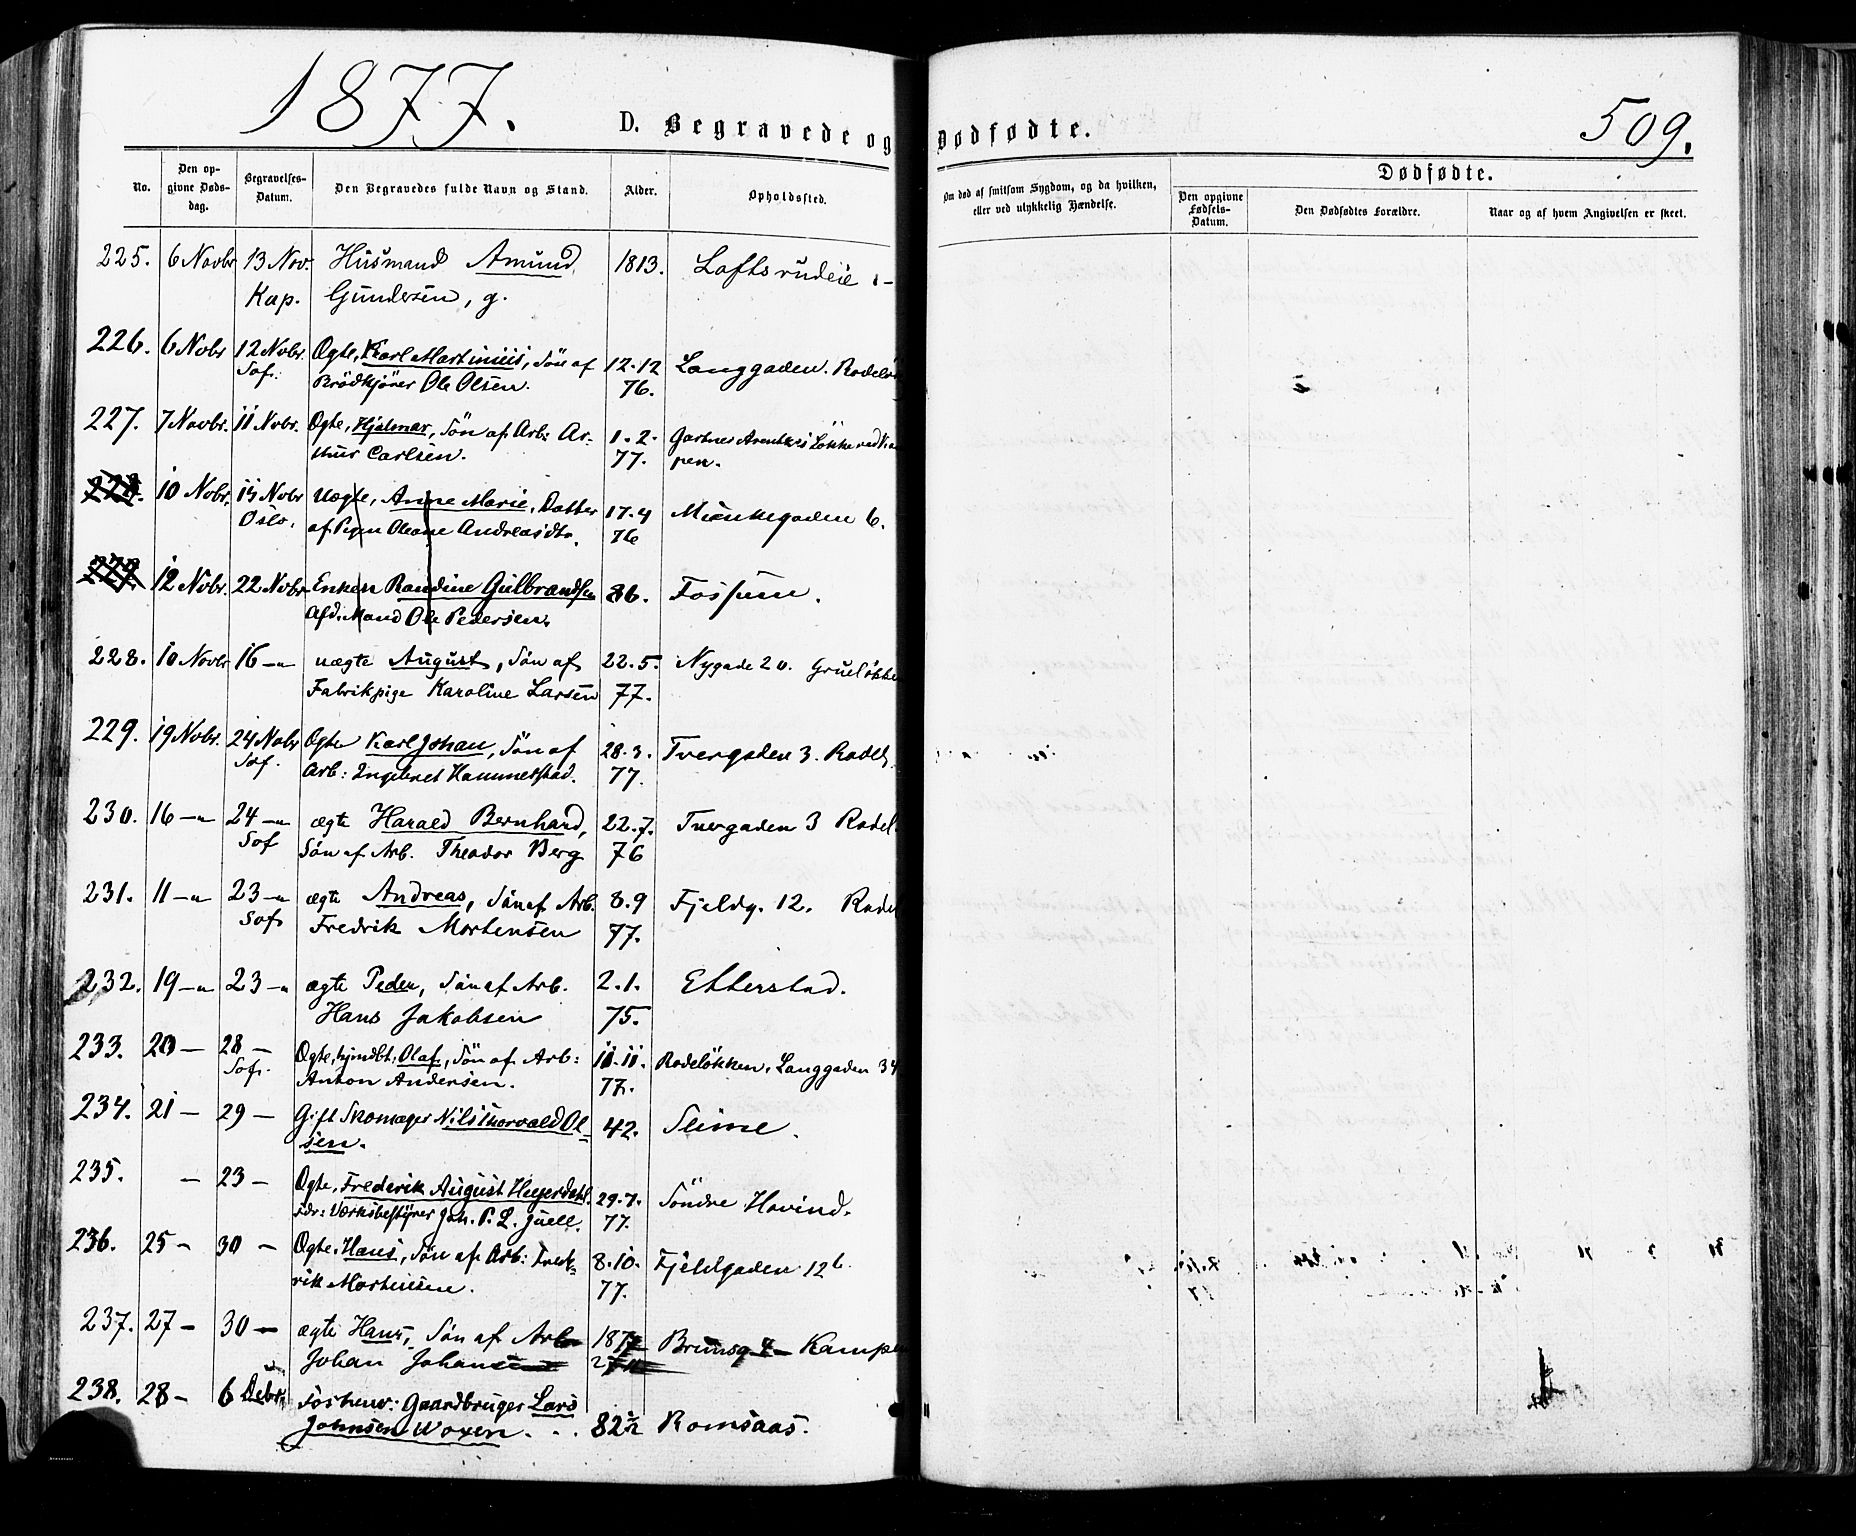 1877.
D. Begravede og Dødfødte.
509.
No.
Den opgivne Dødsdag.
Begravelses-Datum.
Den Begravedes fulde Navn og Stand.
Alder.
Opholdssted.
Om død af smitsom Sygdom, og da hvilken, eller ved ulykkelig Hændelse.
Dødfødte.
Den opgivne Fødsels-Datum.
Den Dødfødtes Forældre.
Naar og af hvem Angivelsen er skeet.
225. 6 Novbr 13 Nov. Husmand Amund 1813. Loftsrudeie
Kap. Gundersen, g.
226. 6 Nobr 12 Nobr. Ægte, Karl Martinius, Søn af 12.12 Langgaden. Rodeløk
Sof. Brödkjörer Ole Olsen. 76.
227. 7 Novbr. 11 Nobr. Ægte, Hjalmar, Søn af Arb: Ar- 1.2. Gartner Løkke ved Kam
thur Carlsen. 77. pen.
228. 10 Nobr. 15 Nobr Uægte, Anne Marie, Datter 17.4 Munkegaden 6.
Oslo. af Pigen Oleane Andreasdtr. 76
229. 12 Nobr. 22 Nobr Enken Randine Gulbrandsen 86. Fossum.
Afd. Mand Ole Pedersen.
228. 10 Novbr 16 -"- uægte August, Søn af 22.5. Nygade 20. Grueløkke
Fabrikpige Karoline Larsen 77.
229. 19 Nobr. 24 Nobr Ægte Karl Johan, Søn af 28.3. Tvergaden 3. Rodel.
Sof. Arb: Ingebret Hammerstad. 77.
230. 16 -"- 24 -"- ægte Harald Bernhard, 22.7. Tvergaden 3 Rodel.
Sof Søn af Arb. Theodor Berg 76
231. 11 -"- 23 -"- ægte Andreas, Søn af Arb. 8.9 Fjeldg. 12. Rodel
Sof Fredrik Mortensen 77.
232. 19 -"- 23 -"- ægte Peder, Søn af Arb. 2.1. Etterstad.
Hans Jakobsen 75.
233. 20 - 28 - Ægte, hjmdbt, Olaf, Søn af Arb: 11.11. Rodeløkken, Langgaden 34
Sof. Anton Andersen. 77.
234. 21 - 29 - Gift Skomager Nils Thorvald Ol- 42.
sen.
235. - 23 - Ægte, Frederik August Heyerdahl. 29.7. Söndre Hovind.
Værksbestyrer Joh. P. L. Juell. 77.
236. 25 - 30 - Ægte, Hans, Søn af Arb: Fred- 8.10. Fjeldgaden 12 b.
rik Mortensen. 77.
237. 27 - 30 - ægte Hans, Søn af Arb 1877 Brunsg 7 Kampen
Johan Johansen
238. 28 - 6 Debr. Gaardbruger Lars
Johnsen Woxen. . . 82½ Romsaas.